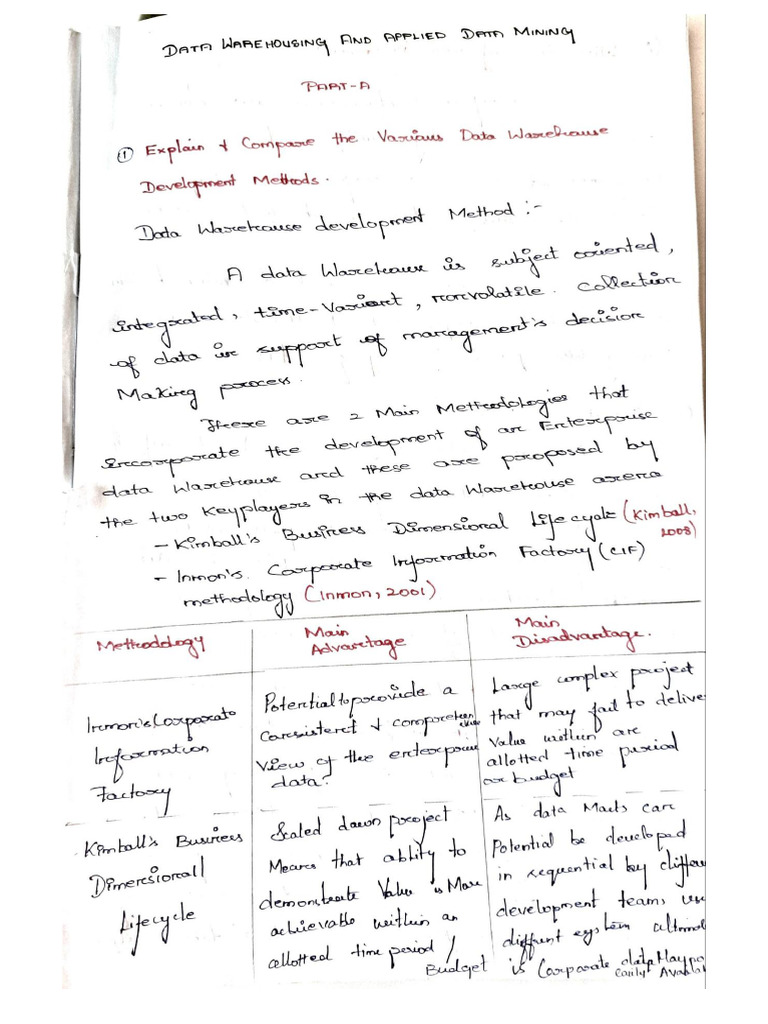 DATA WAREHOUSING AND APPLIED DATA MINING
PART-A
① Explain & Compare the Various Data Warehouse
Development Methods.
Data Warehouse development Method :-
A data Warehouse is subject oriented,
integrated, time-Variant, nonvolatile. Collection
of data in support of management's decision
Making process.
There are 2 Main Methodologies that
incorporate the development of an Enterprise
data Warehouse and these are proposed by
the two Keyplayers in the data Warehouse arena
- Kimball's Business Dimensional Lifecycle (Kimball, 2008)
- Inmon's Corporate Information Factory (CIF)
methodology (Inmon, 2001)
Methodology
Main
Advantage
Main
Disadvantage.
Inmon's Corporate
Information
Factory
Potential to provide a
consistent & comprehensive
view of the enterprise
data.
Large complex project
that may fail to deliver
Value within an
allotted time period
or budget
Kimball's Business
Dimensional
Lifecycle
Scaled down project
Means that ablity to
demonstrate Value is More
achievable within an
allotted time period /
Budget
As data Marts can
Potential be developed
in sequential by differ
development teams, us
diffrent system
is Corporate data May no
Available